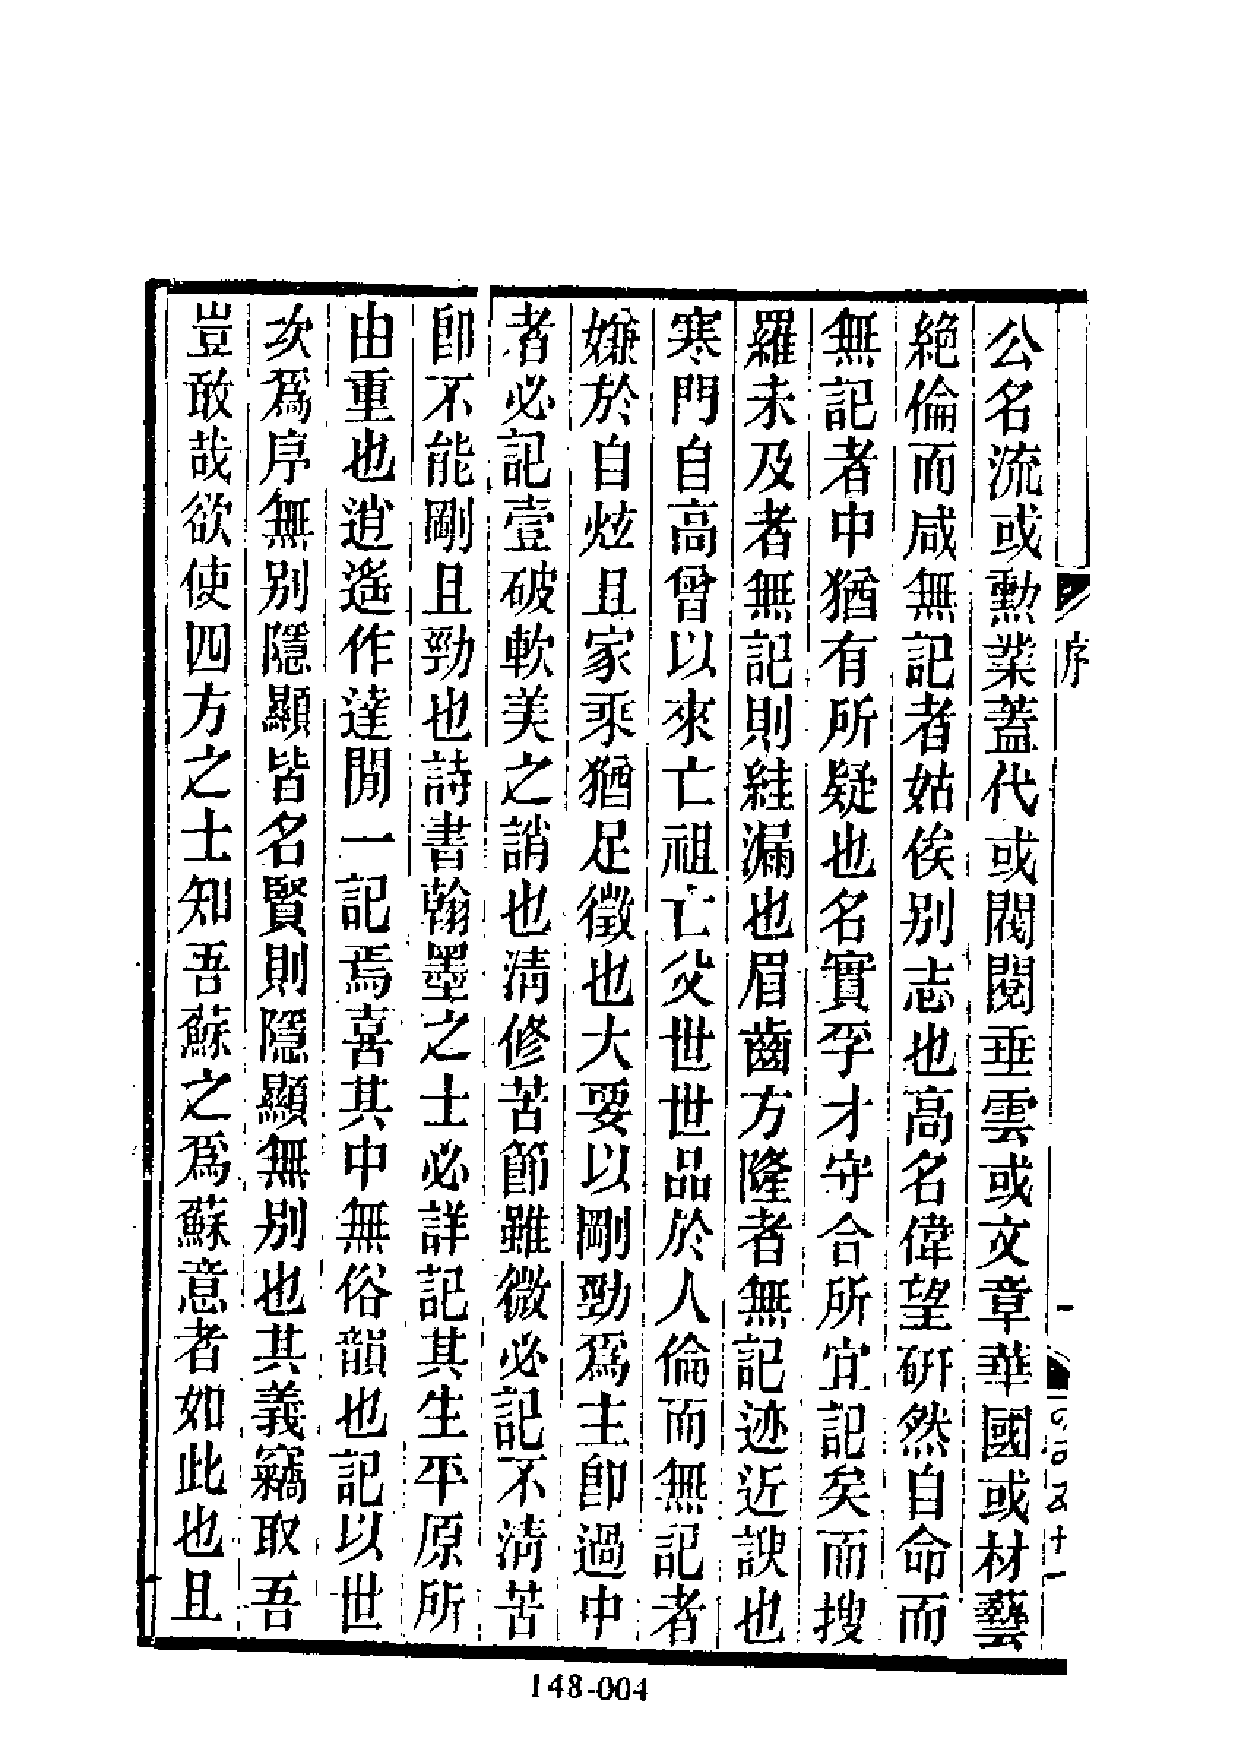 公名流或勳業蓋代或閥閱垂雲或文章華國或材藝
絕倫而咸無記者姑俟別志也高名偉望硏然自命而
無記者中猶有所疑也名實孚才守合所宜記矣而搜
羅未及者無記則絓漏也眉齒方隆者無記迹近諛也
寒門自高曾以來亡祖亡父世世品於人倫而無記者
嫌於自炫且家乘猶足徵也大要以剛勁爲主卽過中
者必記壹破軟美之誚也淸修苦節雖微必記不淸苦
卽不能剛且勁也詩書翰墨之士必詳記其生平原所
由重也逍遙作達閒一記焉喜其中無俗韻也記以世
次爲序無別隱顯皆名賢則隱顯無別也其義竊取吾
豈敢哉欲使四方之士知吾蘇之爲蘇意者如此也且
序
一
148-004